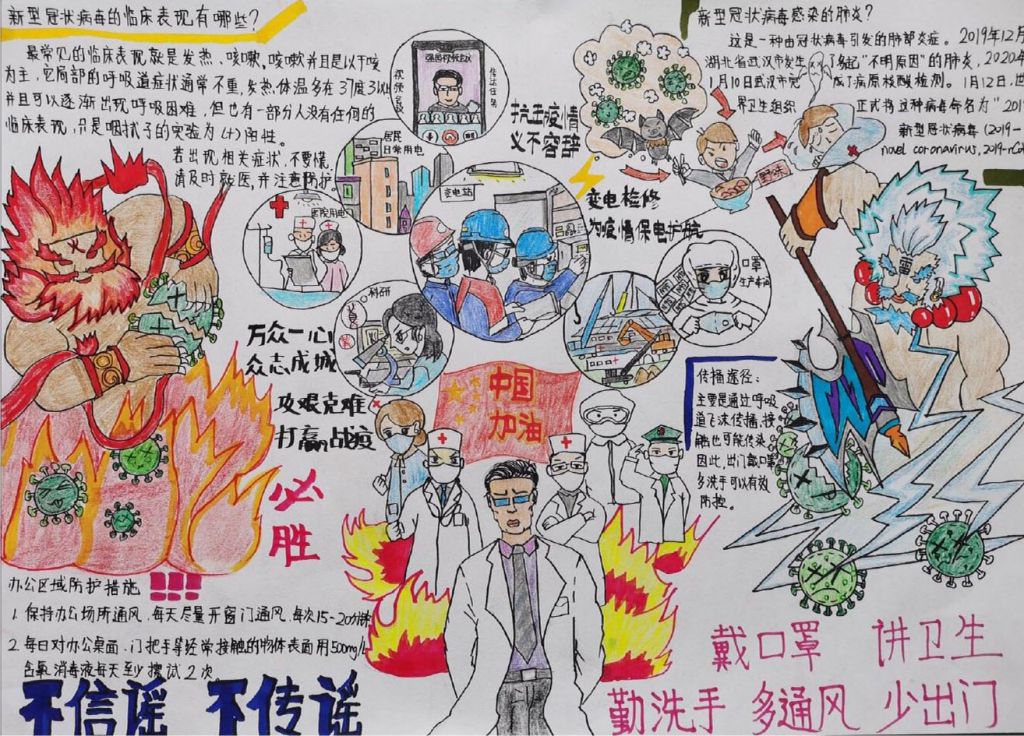 新型冠状病毒的临床表现有哪些?
最常见的临床表现就是发热、咳嗽。咳嗽并且是以干咳
为主,它局部的呼吸道症状通常不重,发热体温多在37度3以
并且可以逐渐出现呼吸困难,但也有一部分人没有任何的
临床表现,只是咽拭子的实验为(+)阳性。
若出现相关症状,不要慌,
请及时就医,并注意防护。
新型冠状病毒感染的肺炎?
这是一种由冠状病毒引发的肺部炎症。2019年12月
湖北省武汉市发 了多起"不明原因"的肺炎,2020年
1月10日武汉市完 成了病原核酸检测。1月12日,世
界卫生组织 正式将这种病毒命名为"201
新型冠状病毒(2019-
novel coronavirus,2019-nC
视频会议
传达任务
抗击疫情
义不容辞
居民
日常用电
变电站
变电检修
为疫情保电护航
野味
医院用电
科研
口罩
生产车间
万众一心
众志成城
攻艰克难
打赢战疫
必
胜
中国
加油
传播途径:
主要是通过呼吸
道飞沫传播,接
触也可能传染
因此,出门戴口罩
多洗手可以有效
防控。
办公区域防护措施
!!!
1. 保持办公场所通风,每天尽量开窗门通风,每次15-20分钟
2. 每日对办公桌面、门把手等经常接触的物体表面用500mg/L
含氯消毒液每天至少擦试2次。
不信谣 不传谣
戴口罩 讲卫生
勤洗手 多通风 少出门